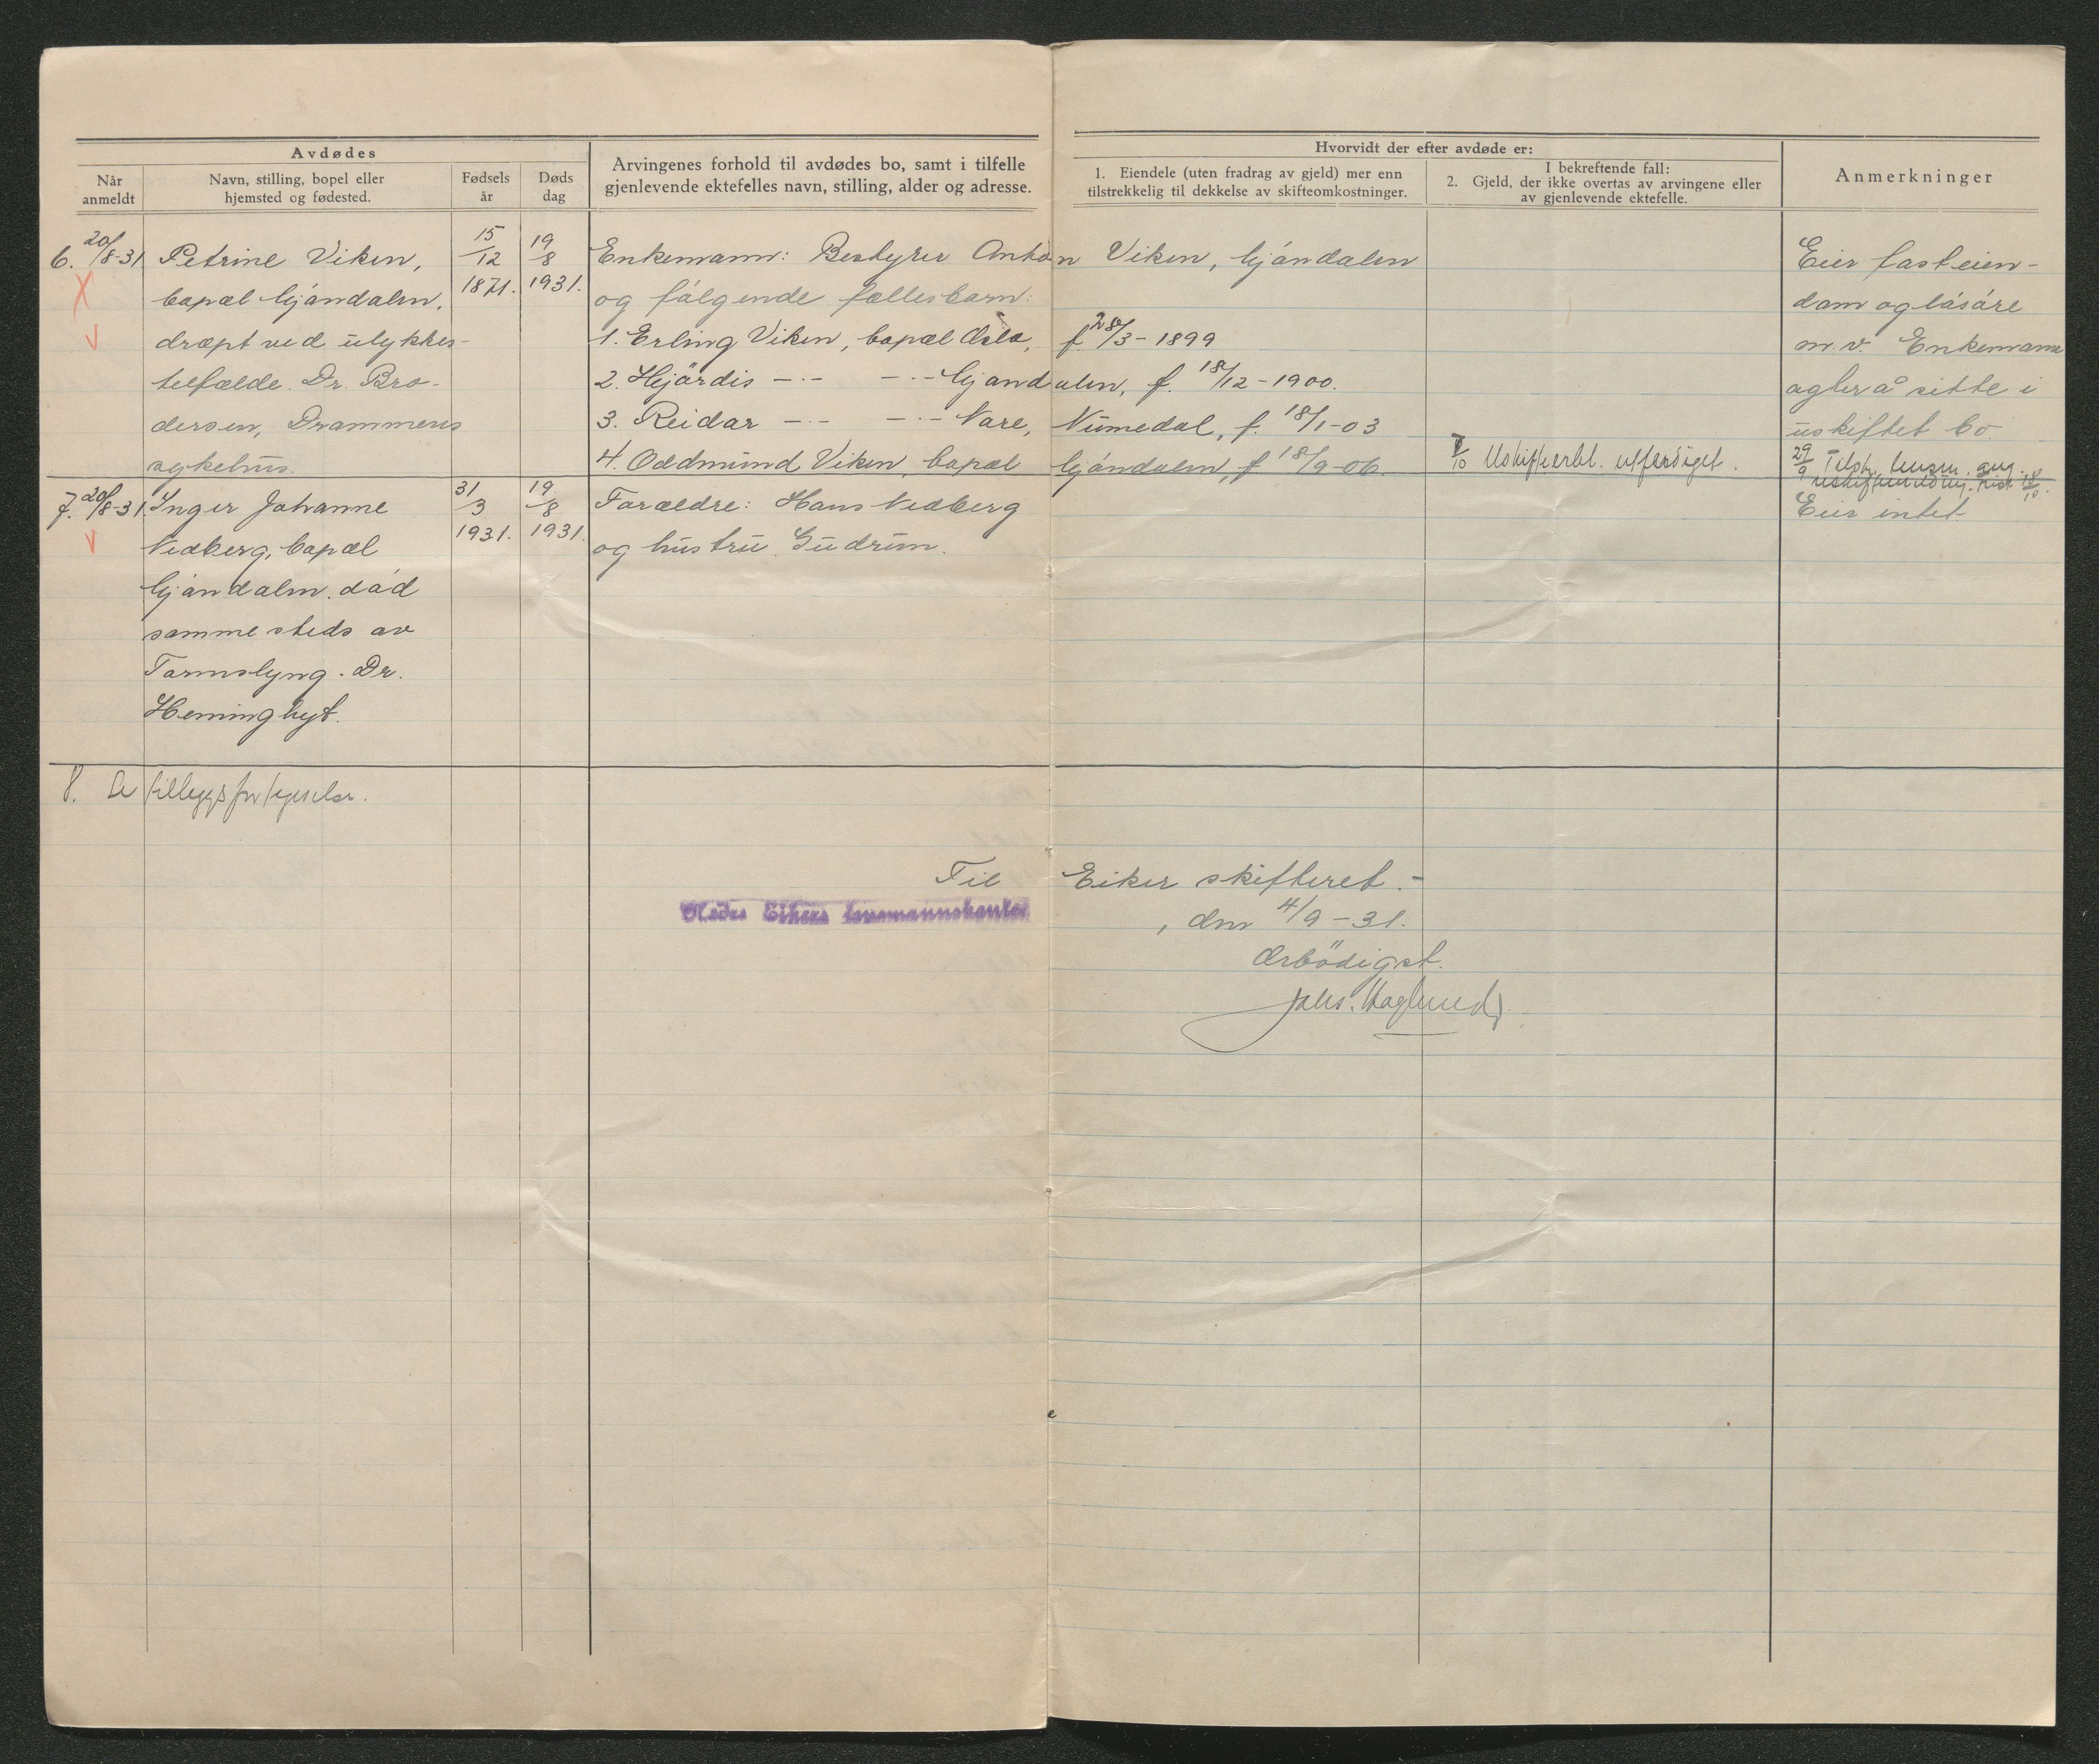 Avdødes
Når anmeldt
Navn, stilling, bopel eller hjemsted og fødested.
Fødsels år
Døds dag
Arvingenes forhold til avdødes bo, samt i tilfelle
gjenlevende ektefelles navn, stilling, alder og adresse.
Hvorvidt der efter avdøde er:
1. Eiendele (uten fradrag av gjeld) mer enn
tilstrekkelig til dekkelse av skifteomkostninger.
I bekreftende fall:
2. Gjeld, der ikke overtas av arvingene eller
av gjenlevende ektefelle.
Anmerkninger
6. 20/8-31
Petrine Viken,
bopæl Gjöndalen,
dræpt ved ulykkes-
tilfælde. Dr. Bro-
dersen, Drammens
sykehus.
15/12 1871.
19/8 1931.
Enkemann: Bestyrer Anton Viken, Gjöndalen
og fölgende fællesbarn:
1. Erling Viken, bopæl Oslo, f. 28/3-1899
2. Hjördis -"- -"- Gjöndalen, f. 18/12-1900.
3. Reidar -"- -"- Nore, Numedal, f. 18/1-03
4. Oddmund Viken, bopæl Gjöndalen, f 18/9-06.
/10 Uskifteerkl. utferdiget.
Eier fasteien-
dom og lösöre
m.v. Enkemann
agter å sitte i
uskiftet bo.
29/9 Tilskr.
7. 20/8-31.
Inger Johanne
Nedberg, bopæl
Gjöndalen. död
sammesteds av
Tarmslyng. Dr.
Heming hyt.
31/3 1931.
19/8 1931.
Forældre: Hans Nedberg
og hustru Gudrun.
Eier intet
8. Se tilleggsfortegnelse.
Til Eiker skifteret.-
Nedre Eikers lensmannskontor, den 4/9-31.
Ærbödigst.
Johs. Haglund